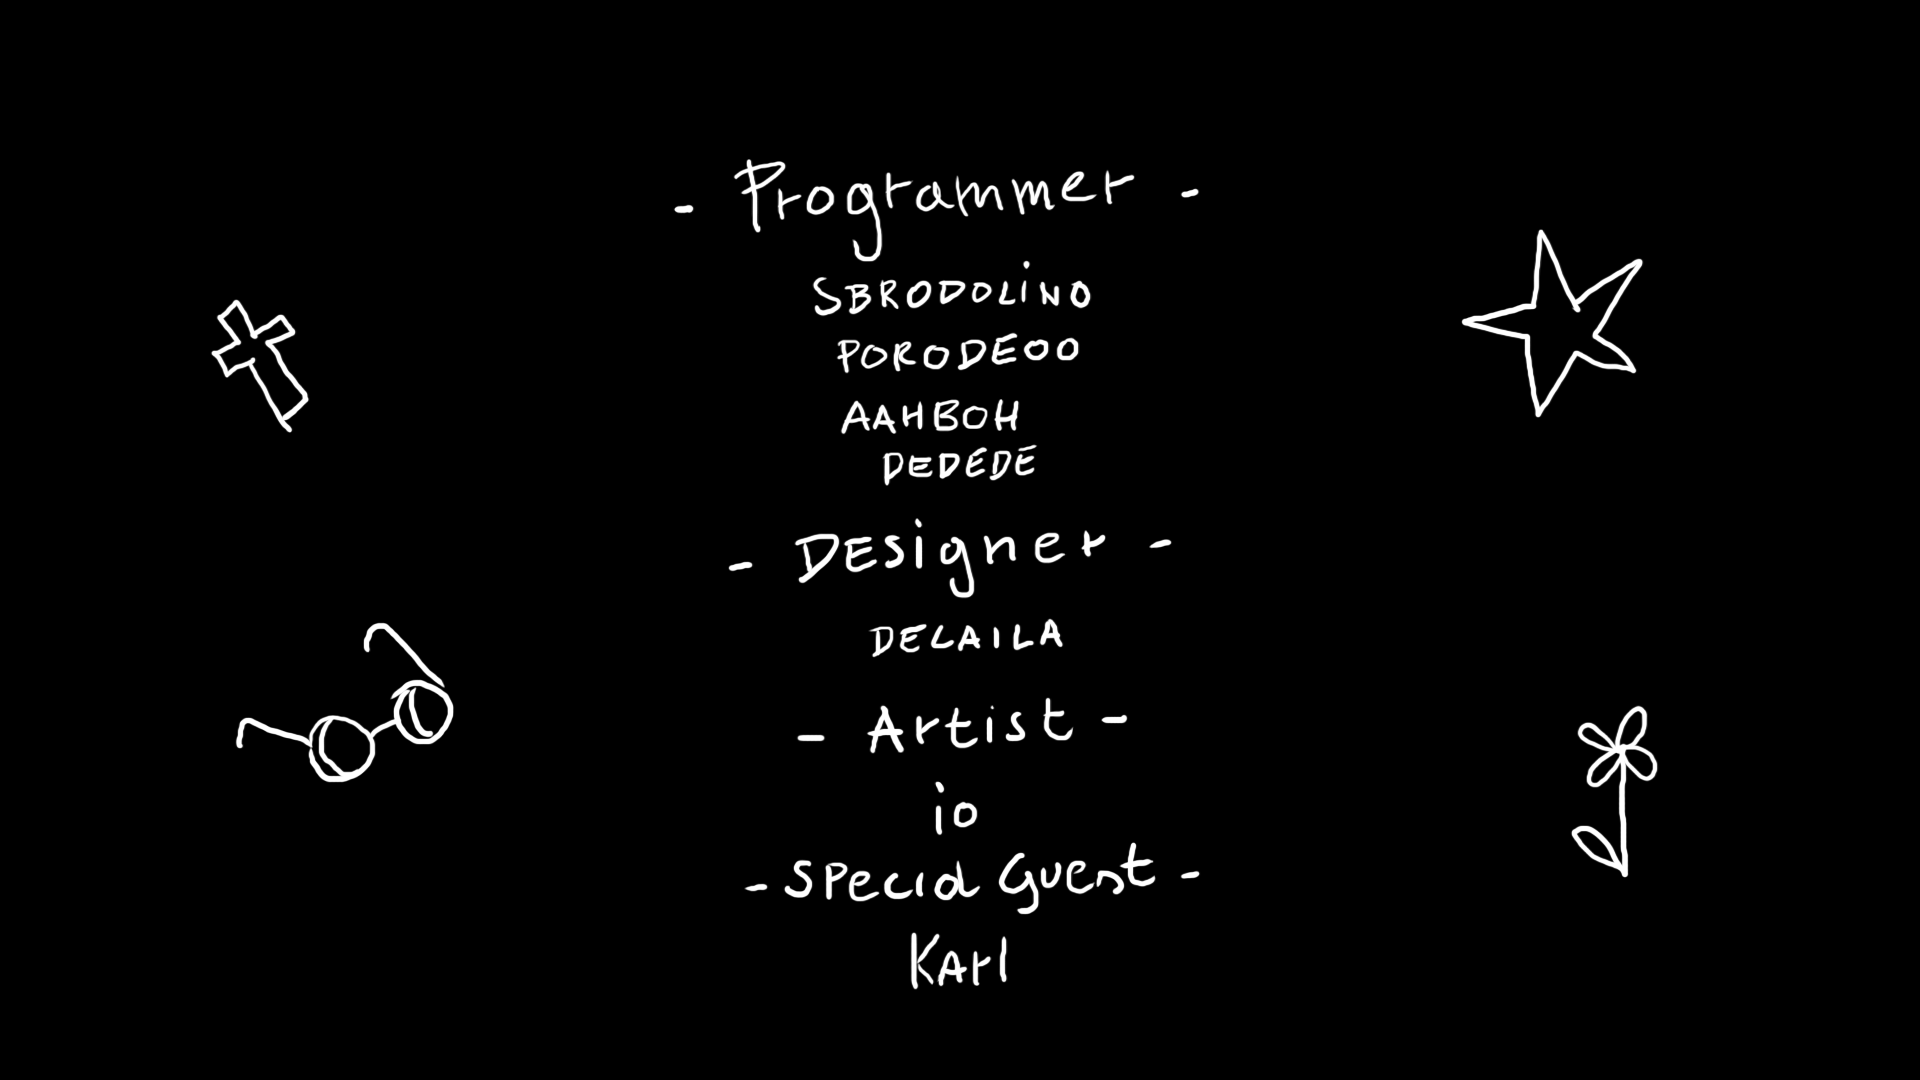 - Programmer -
SBRODOLiNO
PORODEOO
AAHBOH
DEDEDE
- DESigner -
DELAILA
- Artist -
io
- SPecial Guest -
KArl